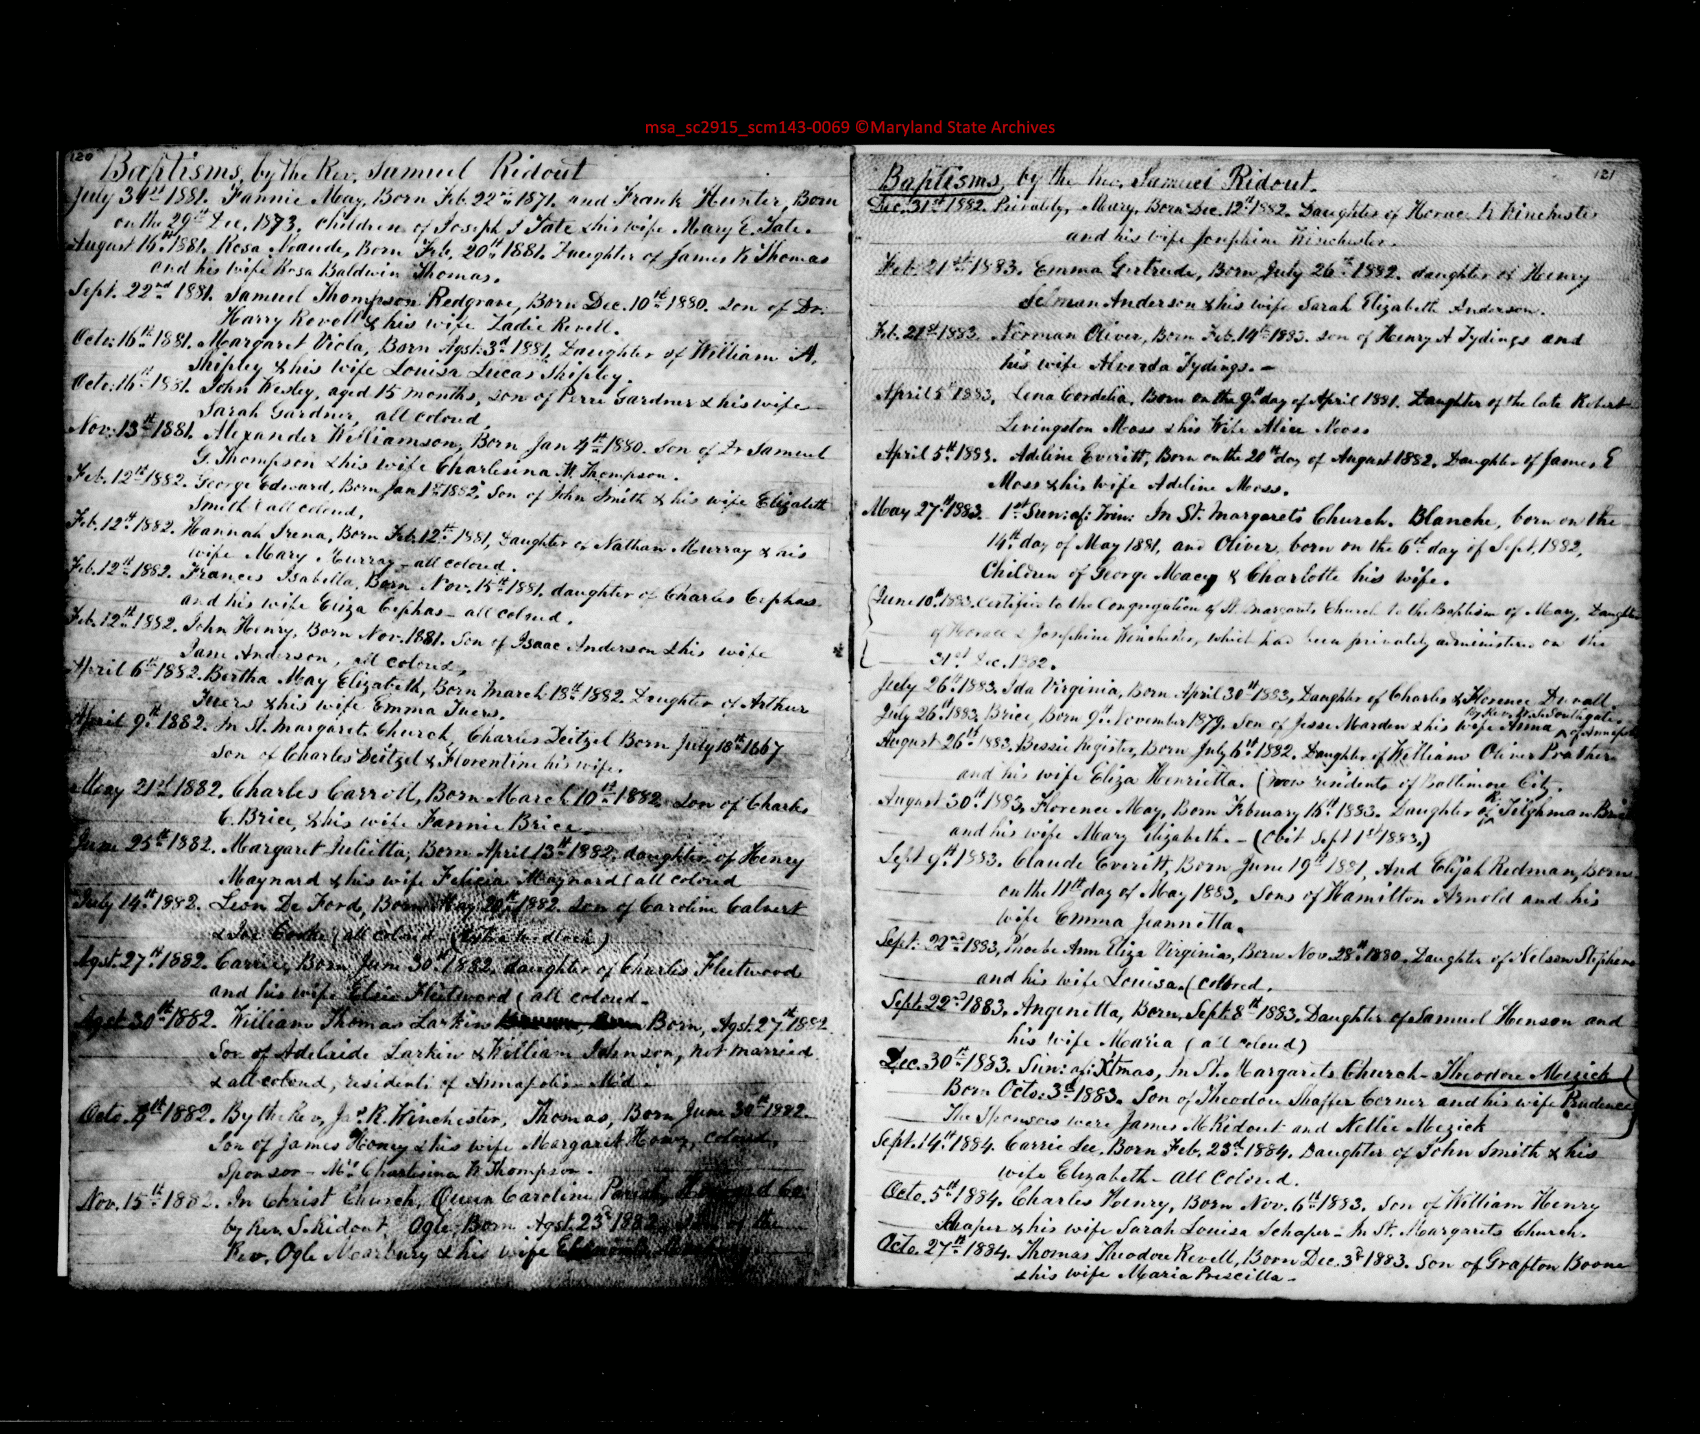 msa_sc2915_scm143-0069 ©Maryland State Archives
120
Baptisms, by the Rev. Samuel Ridout
July 31st 1881. Fannie May, Born Feb. 22nd 1871. and Frank Hunter, Born
on the 29th Dec. 1873. children of Joseph T Tate & his wife Mary E. Tate.
August 16th 1881. Rosa Maude, Born Feb. 20th 1881. Daughter of James K Thomas
and his wife Rosa Baldwin Thomas.
Sept. 22nd 1881. Samuel Thompson Redgrave, Born Dec. 10th 1880. Son of Dr.
Harry Revell & his wife Zadie Revell.
Octo: 16th 1881. Margaret Viola, Born Agst. 3d 1881, Daughter of William A.
Shipley & his wife Louisa Lucas Shipley.
Octo: 16th 1881. John Wesley, aged 15 months, son of Perre Gardner & his wife
Sarah Gardner, all colored.
Nov: 13th 1881. Alexander Williamson, Born Jan 4th 1880. Son of Dr Samuel
G. Thompson & his wife Charlesina M. Thompson.
Feb. 12th 1882. George Edward, Born Jan 1st 1882, Son of John Smith & his wife Elizabeth
Smith (all colored.
Feb. 12th 1882. Hannah Irena, Born Feb. 12th 1881, Daughter of Nathan Murray & his
wife Mary Murray - all colored.
Feb. 12th 1882. Frances Isabella, Born Nov. 15th 1881. daughter of Charles Cephas
and his wife Eliza Cephas - all colored.
Feb. 12th 1882. John Henry, Born Nov. 1881. Son of Isaac Anderson & his wife
Jane Anderson, all colored,
April 6th 1882. Bertha May Elizabeth, Born March 18th 1882. Daughter of Arthur
Tuers & his wife Emma Tuers.
April 9th 1882. In St. Margarets Church, Charles Deitzel Born July 18th 1867
Son of Charles Deitzel & Florentine his wife.
May 21st 1882. Charles Carroll, Born March 10th 1882 Son of Charles
C. Brice, & his wife Fannie Brice
June 25th 1882. Margaret Julietta, Born April 13th 1882, daughter of Henry
Maynard & his wife Felicia Maynard (all colored
July 14th 1882. Leon De Ford, Born May 20th 1882. son of Caroline Calvert
& Joe Cooke (all colored - wedlock)
Agst. 27th 1882. Carrie, Born June 30th 1882, daughter of Charles Fleetwood
and his wife Elsie Fleetwood (all colored -
Agst 30th 1882. William Thomas Larkin Born, Agst. 27th 1882
Son of Adelaide Larkin & William Johnson, not married
& all colored, residents of Annapolis Md.
Octo. 4th 1882. By the Rev. Jas. R. Winchester, Thomas, Born June 30th 1882.
Son of James Honey & his wife Margaret Honey, colored,
Sponsor - Mrs Charlesina M. Thompson.
Nov. 15th 1882. In Christ Church, Queen Caroline Parish, Howard Co.
by Rev. S. Ridout, Ogle, Born Agst. 23d 1882, Son of the
Rev. Ogle Marbury & his wife
121
Baptisms, by the Rev. Samuel Ridout.
Dec. 31st 1882. Privately, Mary, Born Dec. 12th 1882. Daughter of Horace R Winchester
and his wife Josephine Winchester.
Feb. 21st 1883. Emma Gertrude, Born July 26th 1882. daughter of Henry
Selman Anderson & his wife Sarah Elizabeth Anderson.
Feb. 21st 1883. Norman Oliver, Born Feb. 14th 1883. son of Henry A Tydings and
his wife Alverda Tydings. -
April 5th 1883. Lena Cordelia, Born on the 9th day of April 1881. Daughter of the late Robert
Levingston Moss & his Wife Alice Moss.
April 5th 1883. Adeline Everitt, Born on the 20th day of August 1882. Daughter of James E
Moss & his wife Adeline Moss.
May 27th 1883 - 1st Sun: af: Trin: In St. Margarets Church. Blanche, born on the
14th day of May 1881, and Oliver, born on the 6th day of Sept. 1882,
Children of George Macey & Charlotte his wife.
(June 10th 1883. Certifies to the Congregation of St. Margarets Church to the Baptism of Mary, Daughter
of Horace & Josephine Winchester, which had been privately administered on the
31st Dec. 1882.
July 26th 1883. Ida Virginia, Born April 30th 1883, Daughter of Charles & Florence Duvall
by Rev. Southgate of Annapolis
July 26th 1883, Brice, Born 9th November 1879. Son of Jesse Marden & his wife Anna
August 26th 1883. Bessie Register, Born July 6th 1882. Daughter of William Oliver Prather
and his wife Eliza Henrietta. (now residents of Baltimore City.
August 30th 1883, Florence May, Born February 15th 1883. Daughter of R. Tilghman Brice
and his wife Mary Elizabeth. - (Obit Sept 1st 1883.)
Sept 9th 1883. Claude Everitt, Born June 19th 1881, And Elijah Redman, Born
on the 11th day of May 1883, Sons of Hamilton Arnold and his
wife Emma Jeannetta.
Sept: 22nd 1883, Phoebe Ann Eliza Virginia, Born Nov. 28th 1880. Daughter of Nelson Stephens
and his wife Louisa. (colored.
Sept. 22nd 1883. Angenetta, Born, Sept. 8th 1883. Daughter of Samuel Henson and
his wife Maria (all colored)
Dec. 30th 1883. Sun: af: Xtmas, In St. Margarets Church - Theodore Mezick
Born Octo: 3d 1883. Son of Theodore Shafer Corner and his wife Prudence
The Sponsors were James M Ridout and Nellie Mezick
Sept. 14th 1884. Carrie Lee, Born Feb. 23d 1884. Daughter of John Smith & his
wife Elizabeth - all colored.
Octo. 5th 1884. Charles Henry, Born Nov. 6th 1883. Son of William Henry
Shaper & his wife Sarah Louisa Schaper - In St. Margarets Church.
Octo. 27th 1884. Thomas Theodore Revell, Born Dec. 3d 1883. Son of Grafton Boone
& his wife Maria Priscilla -